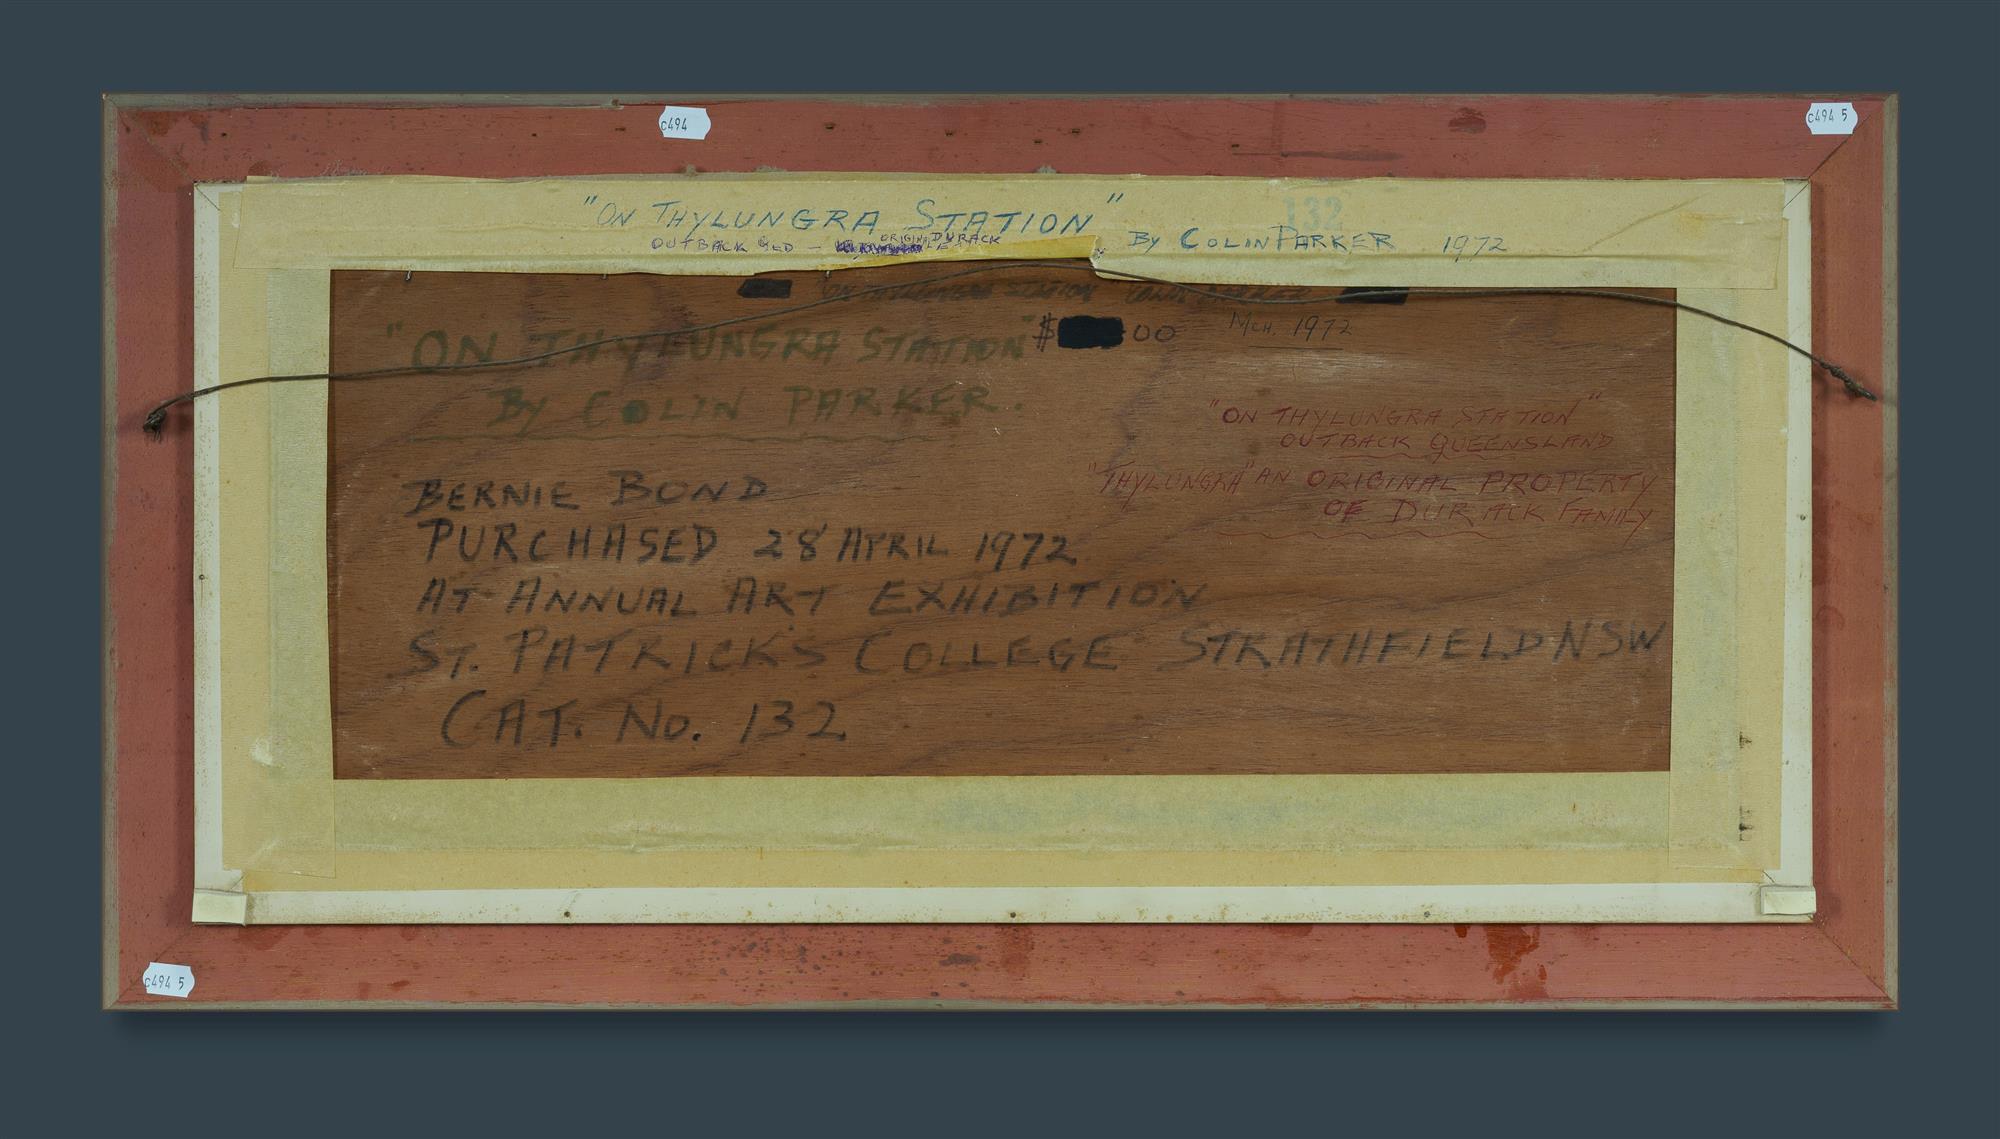 c494
c494 5
132
"ON THYLUNGRA STATION"
OUTBACK QLD — ORIGINAL DURACK
By COLIN PARKER 1972
"ON THYLUNGRA STATION COLIN PARKER
"ON THYLUNGRA STATION"
By COLIN PARKER.
$ 00
MCH. 1972
"ON THYLUNGRA STATION"
OUTBACK QUEENSLAND
"THYLUNGRA" AN ORIGINAL PROPERTY
OF DURACK FAMILY
BERNIE BOND
PURCHASED 28 APRIL 1972
AT ANNUAL ART EXHIBITION
ST. PATRICK'S COLLEGE STRATHFIELD NSW
CAT. No. 132
c494 5